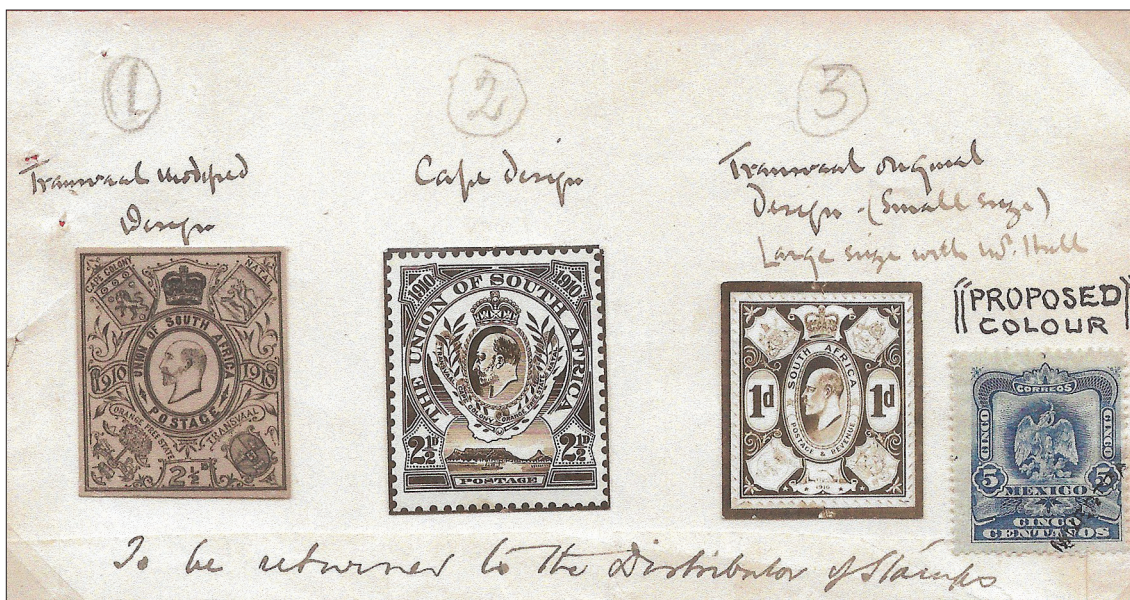 1
Transvaal modified
Design
CAPE COLONY
NATAL
UNION OF SOUTH AFRICA
1910 1910
POSTAGE
ORANGE FREE STATE
TRANSVAAL
2½D
2
Cape Design
1910 1910
THE UNION OF SOUTH AFRICA
2½D 2½D
POSTAGE
3
Transvaal original
Design - (Small size)
Large size with Mr. Hull
SOUTH AFRICA
1d 1d
POSTAGE & REVENUE
1910
"PROPOSED"
COLOUR
CORREOS
CINCO CINCO
5 5
MEXICO
CINCO
CENTAVOS
To be returned to the Distributor of Stamps